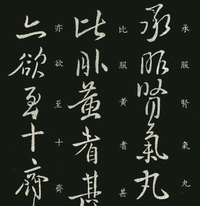 承服腎氣丸
承服腎氣丸
比服黃者甚
比服黃者甚
亦欲至十齊
亦欲至十齊